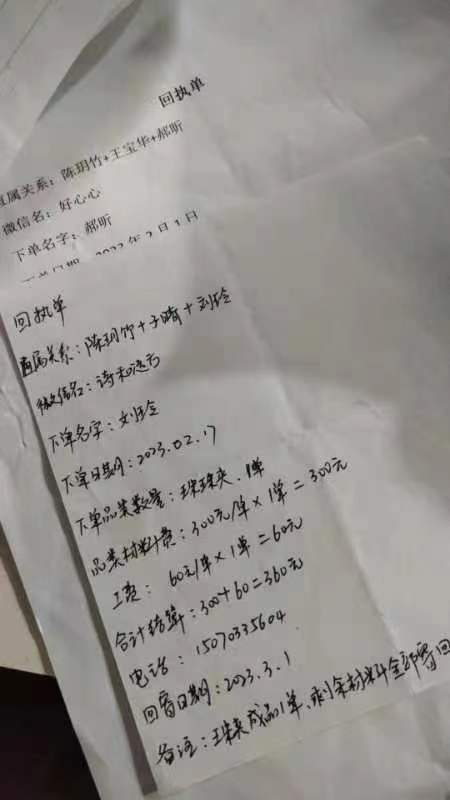 回执单
直属关系：陈玥竹+王宝华+郝昕
微信名：好心心
下单名字：郝昕
回执单
直属关系：陈玥竹+子晴+刘
微信名：诗和远方
下单名字：刘
下单日期：2023.02.17
下单品类数量：珠珠夹.1单
品类材料费：300元/单×1单=300元
工费：60元/单×1单=60元
合计结算：300+60=360元
电话：15070335604
回寄日期：2023.3.1
备注：珠夹成品1单.剩余材料全部寄回